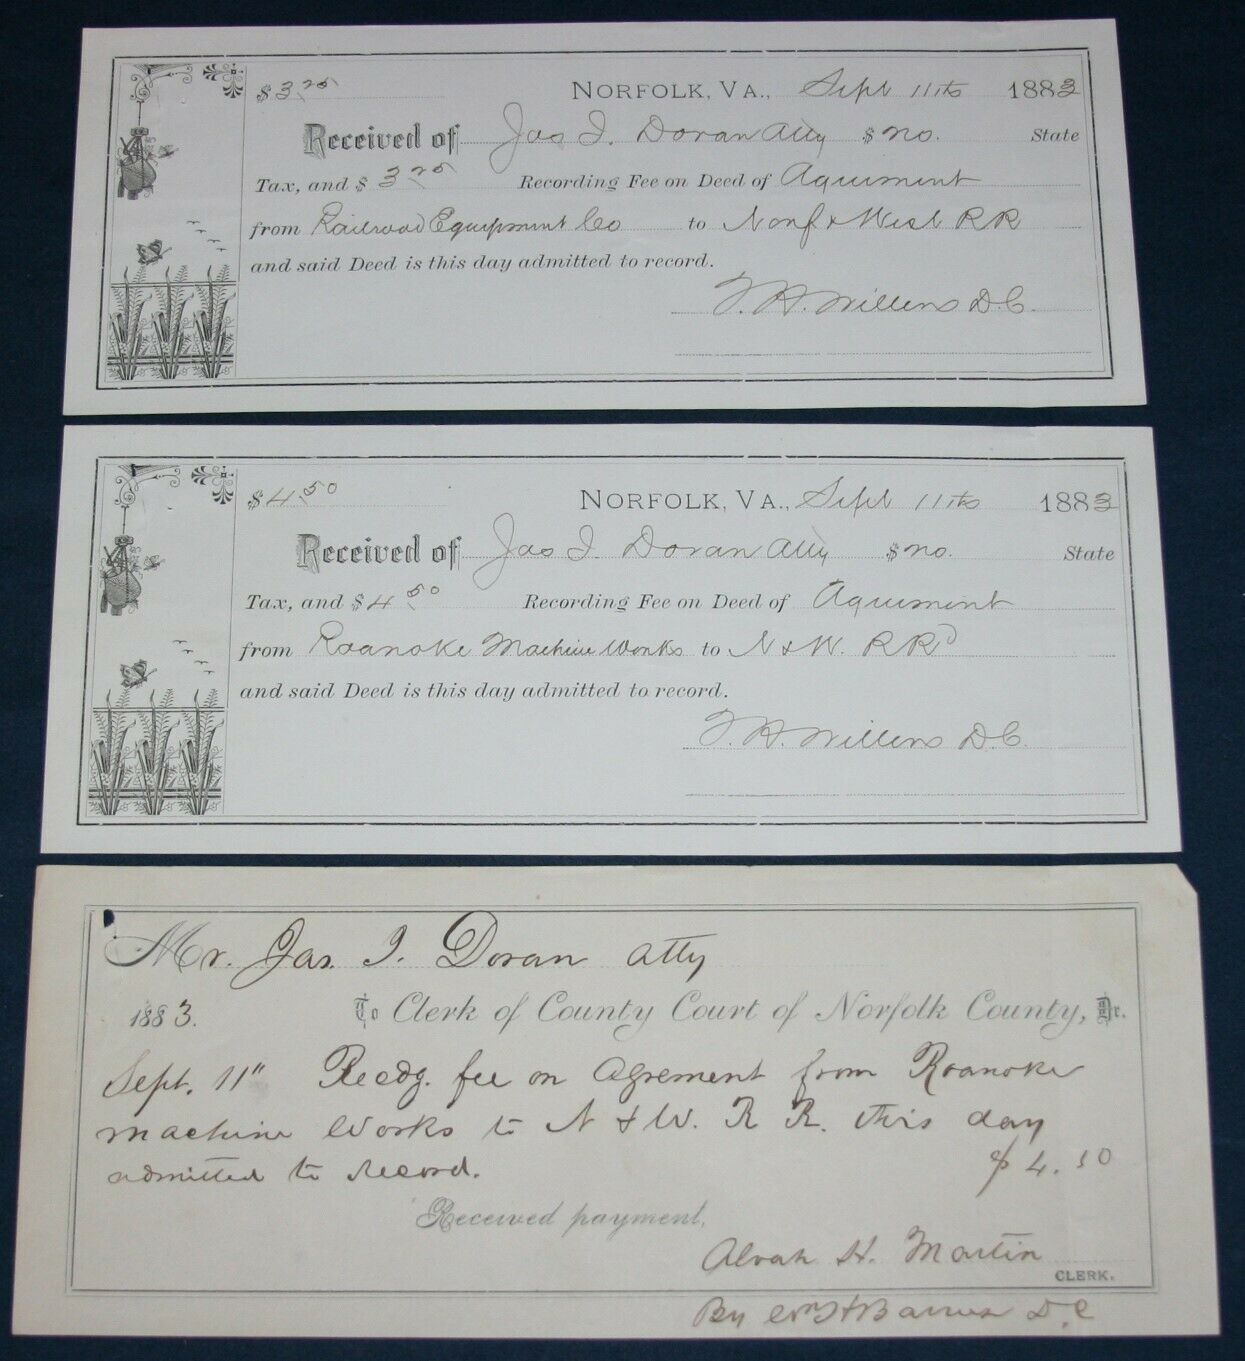 $3 25 NORFOLK, VA., Sept 11th 1883
Received of Jas I. Doran Atty $ no. State
Tax, and $ 3 25 Recording Fee on Deed of Agreement
from Railroad Equipment Co to Norf & West RR
and said Deed is this day admitted to record.
T. H. Willens D.C.
$4 50 NORFOLK, VA., Sept 11th 1883
Received of Jas I. Doran Atty $ no. State
Tax, and $ 4 50 Recording Fee on Deed of Agreement
from Roanoke Machine Works to N & W. RRd
and said Deed is this day admitted to record.
T. H. Willens D.C.
Mr. Jas. I. Doran atty
1883. To Clerk of County Court of Norfolk County, Dr.
Sept. 11" Recdg. fee on Agrement from Roanoke
machine Works to N & W. R R. this day
admitted to record. $4.50
Received payment,
Alvah H. Martin
CLERK.
By Wm H Barnes D.C